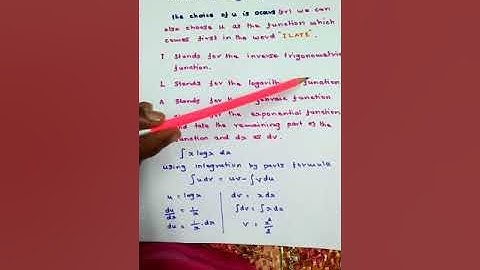 The choice of u is occurs (or) we can
also choose u as the function which
comes first in the word "ILATE".
I stands for the inverse trigonometric
function.
L stands for the function
A stands for the function
for the exponential function
and take the remaining part of the
function and dx as dv.
∫ x logx dx
using integration by parts formula
∫ u dv = uv - ∫ v du
u = logx dv = x dx
du/dx = 1/x ∫ dv = ∫ x dx
du = 1/x . dx v = x²/2